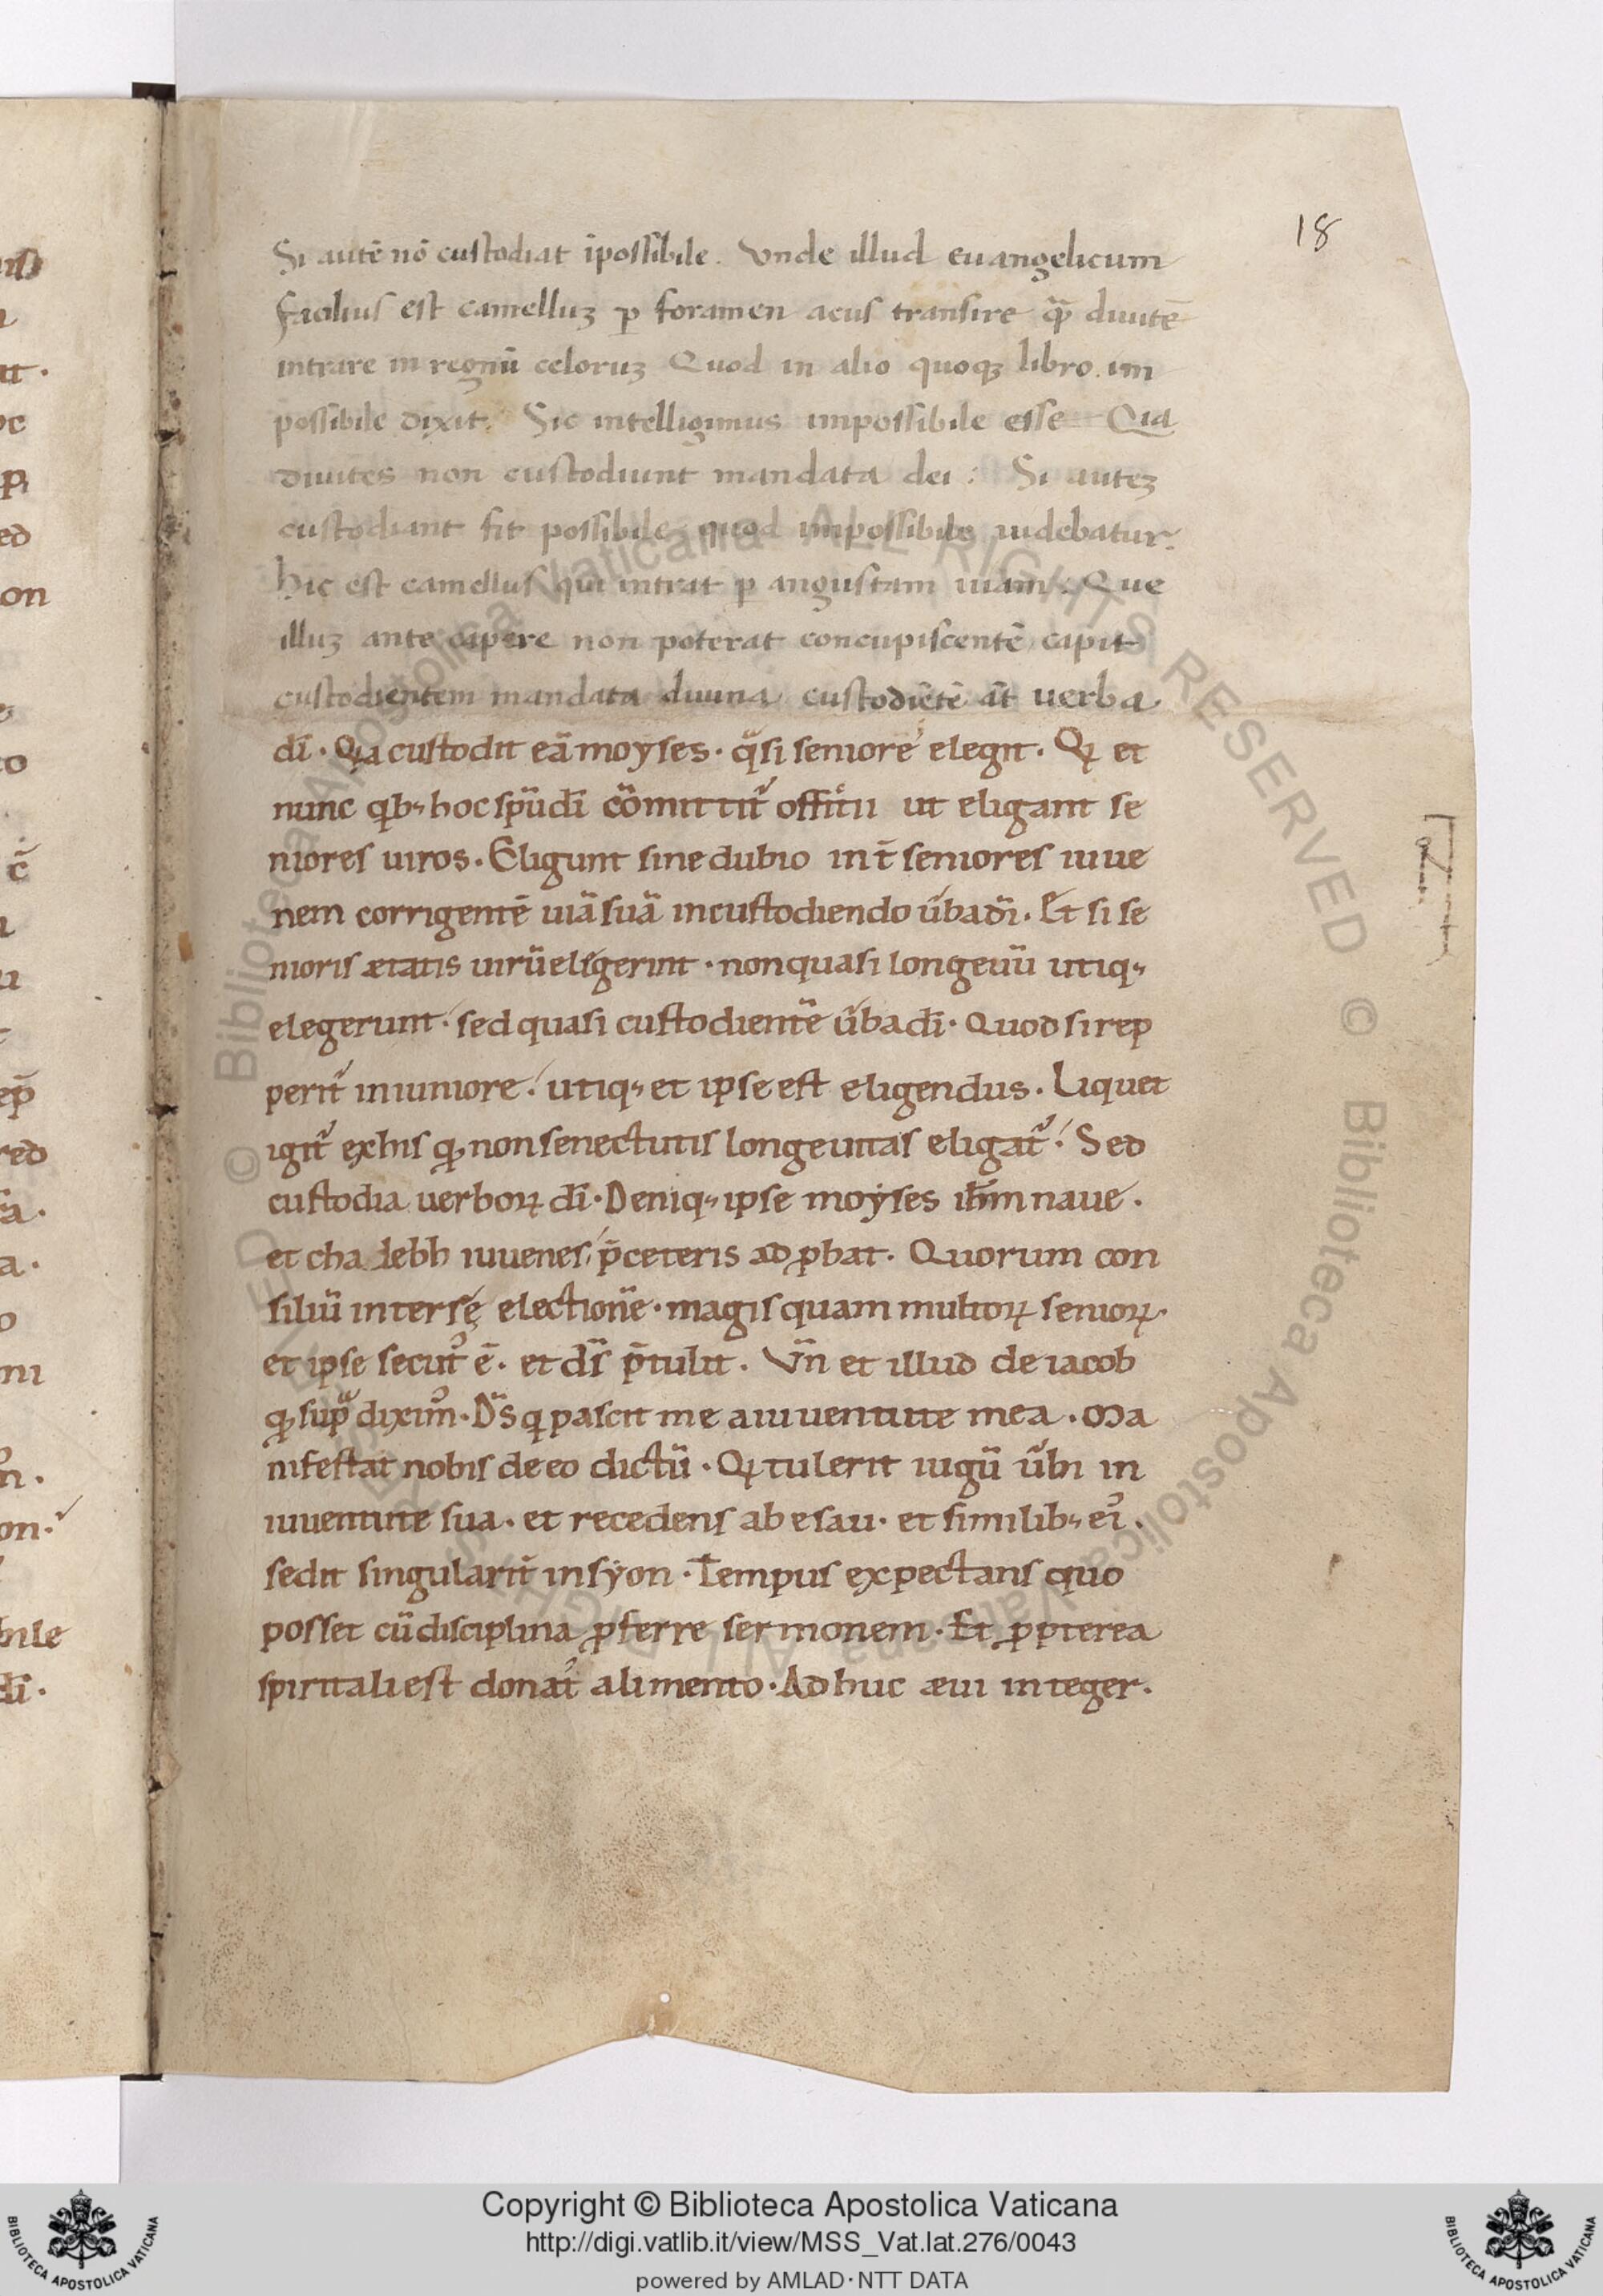 18
Si autē nō custodiat īpossibile. Vnde illud euangelicum
facilius est camelluꝫ ꝑ foramen acus transire qᷓ diuitē
intrare in regnū celoruꝫ Quod in alio quoqꝫ libro im
possibile dixit. Sic intelligimus impossibile esse Qia
diuites non custodiunt mandata dei : Si auteꝫ
custodiant fit possibile quod impossibile uidebatur.
hic est camellus qui intrat ꝑ angustam uiam. Que
illuꝫ ante capere non poterat concupiscentē capit
custodientem mandata diuina custodiētē āt uerba
dī. Qia custodit eā moyses. qᷓsi seniore᾿ elegit. Qꝫ et
nunc qib; hoc sp̄ūdī cōmittit᷑ offitíí ut eligant se
niores uiros. Eligunt sine dubio int̄ seniores iuue
nem corrigentē uiā suā incustodiendo u̅ba dī. Et si se
nioris ætatis uirū elígerint. non quasi longeuū utiq;
elegerunt. sed quasi custodientē u̅ba dī. Quod si rep
perit᷑ in iuniore. utiq; et ipse est eligendus. Liquet
igit᷑ exhis qꝫ non senectutis longeuitas eligat᷑. Sed
custodia uerboꝝ dī. Deniq; ipse moyses ihm̄ naue.
et cha lebh iuuenes p̄ceteris ad ꝓbat. Quorum con
siliū intersę electionē. magis quam multoꝝ senioꝝ
et ipse secut᾿ ē. et dn̄s p̄tulit. Vn̄ et illud de iacob
qꝫ supᷓ dixim᾿. Ds̄ qi pascit me aiuuentute mea. Ma
nifestat nobis de eo dictū. Qꝫ tulerit iugū u̅bi in
iuuentute sua. et recedens ab esau. et similib; ei᾿.
sedit singularit̄ insyon. Tempus expectans quo
posset cū disciplina ꝓferre sermonem. Et ꝓpterea
spiritali est donat᾿ alimento. Ad huc æui integer.
Biblioteca Apostolica Vaticana ALL RIGHTS RESERVED © Biblioteca Apostolica Vaticana ALL RIGHTS RESERVED ©
Copyright © Biblioteca Apostolica Vaticana
http://digi.vatlib.it/view/MSS_Vat.lat.276/0043
powered by AMLAD·NTT DATA
BIBLIOTECA APOSTOLICA VATICANA
BIBLIOTECA APOSTOLICA VATICANA